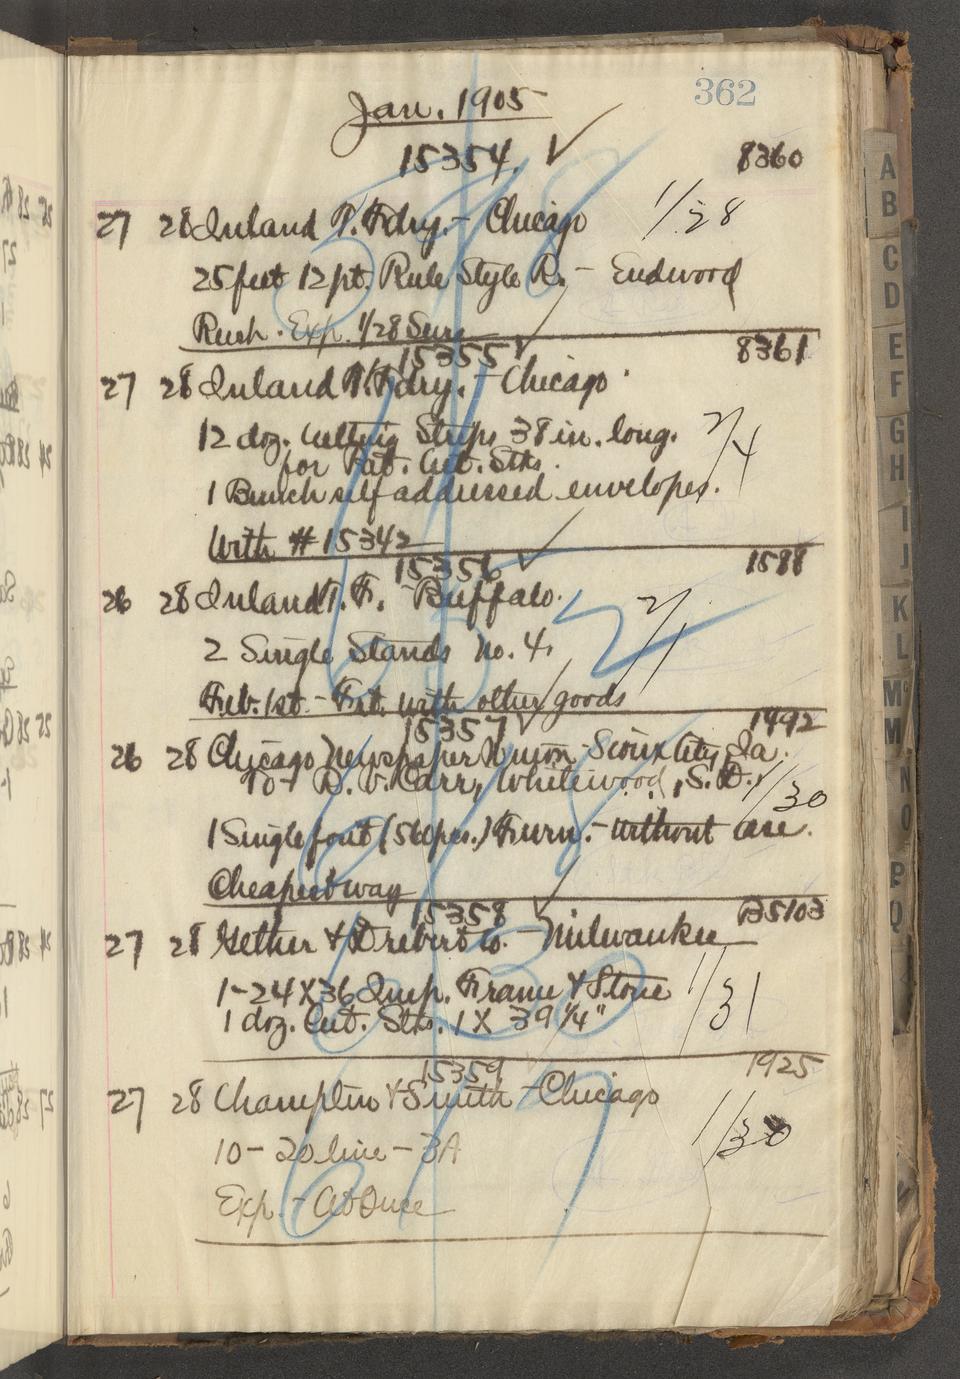 362
Jan. 1905
15354. ✓ 8360
27 28 Inland T. Fdry. - Chicago 1/28
25 feet 12 pt. Rule Style R. - Endwood
Rush. Exp. 1/28 Sure
15355 ✓ 8361
27 28 Inland T. Fdry. - Chicago
12 doz. Cutting Strips 38 in. long. 2/4
for Pat. Cut. Stks.
1 Bunch self addressed envelopes.
With # 15342
15356 ✓ 1588
26 28 Inland T. F. - Buffalo. 2/1
2 Single Stands No. 4.
Feb. 1st - Frt. with other goods
15357 ✓ 1492
26 28 Chicago Newspaper Union - Sioux City, Ia.
To D. V. Carr, Whitewood, S. D. 1/30
1 Single font (56 pcs.) Furn. - Without Case.
Cheapest way
15358 ✓ B5103
27 28 Gether & Drebert Co. - Milwaukee
1-24 X 36 Imp. Frame & Stone 1/31
1 doz. Cut. Stks. 1 X 39 1/4"
15359 1925
27 28 Champlin & Smith - Chicago
10 - 20 line - 3A 1/30
Exp. - At Once
A
B
C
D
E
F
G
H
I
J
K
L
Mc
M
N
O
P
Q